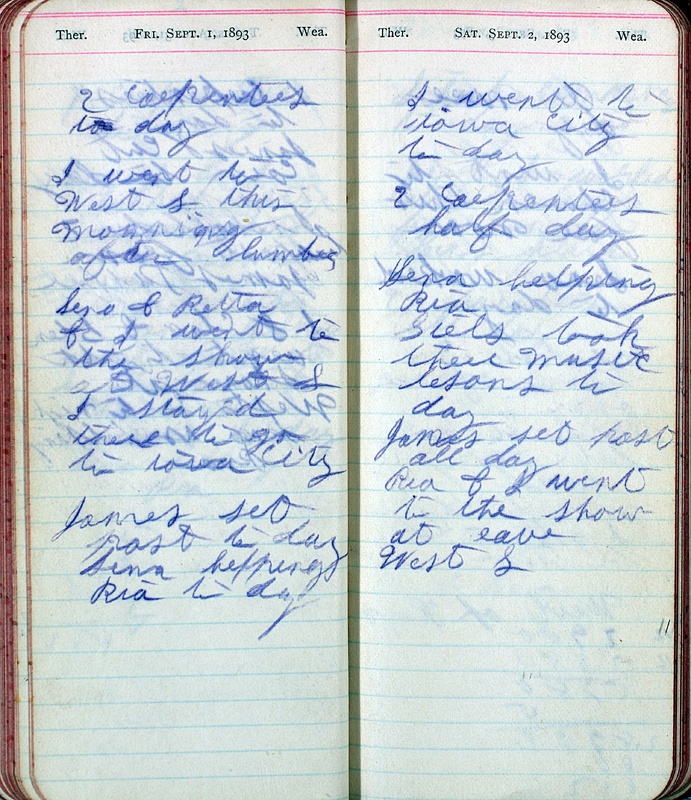 Ther. FRI. SEPT. 1, 1893 Wea.
2 Carpenters
to day
I went to
West L this
Morning
after lumber
Geo & Retta
& I went to
the show
at West L
I stay'd
there to go
to iowa City
James set
post to day
Lena helping
Ria to day
Ther. SAT. SEPT. 2, 1893 Wea.
I went to
iowa City
to day
2 Carpenters
half day
Lena helping
Ria
Giels took
thee music
lesons to
day
James set post
all day
Ria & I went
to the show
at eave
West L